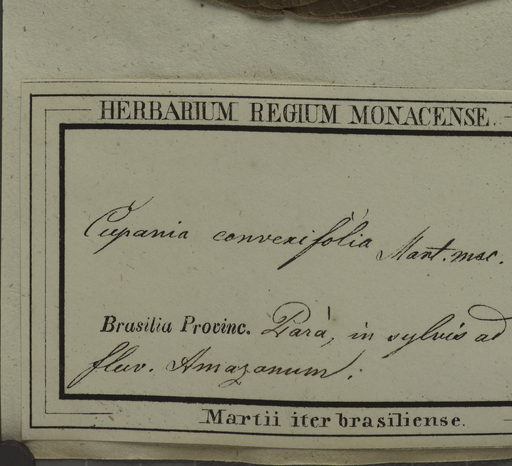 HERBARIUM REGIUM MONACENSE.
Cupania convexifolia Mart. msc.
Brasilia Provinc. Pará, in sylvis ad
fluv. Amazonum.
Martii iter brasiliense.